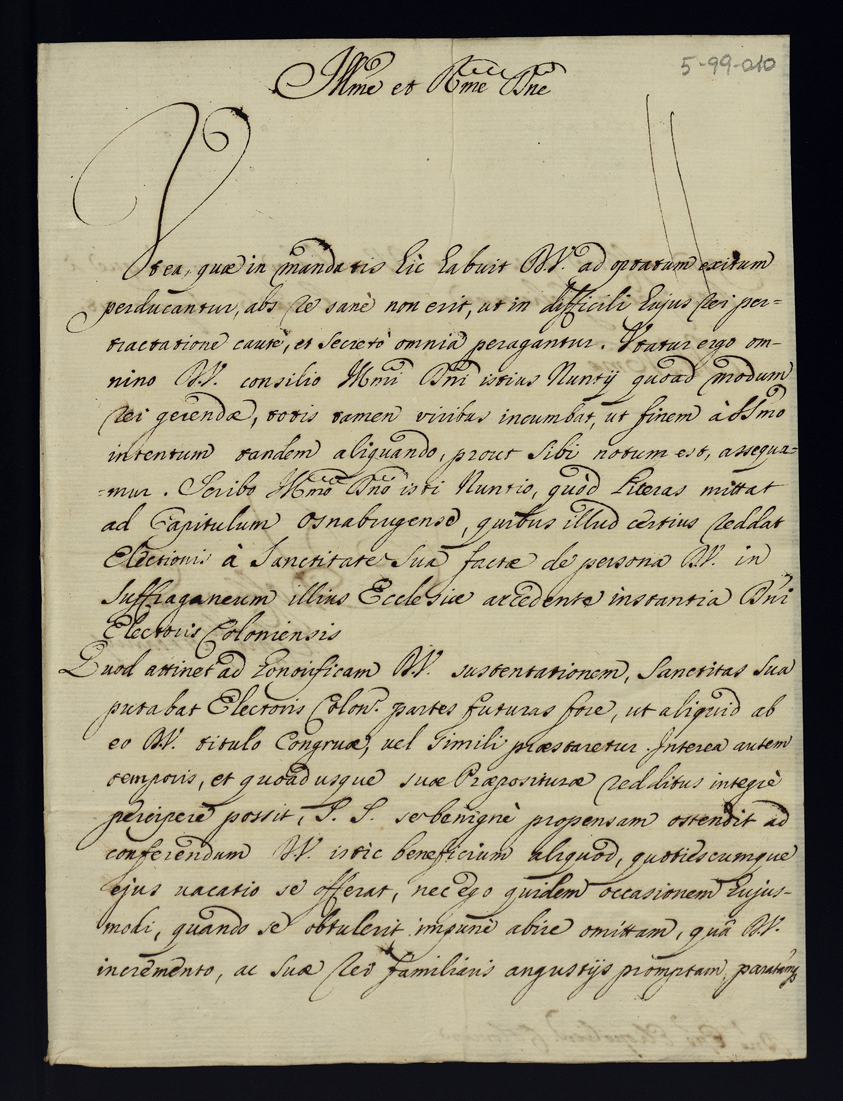 5-99-010
Illme et Rme Dne
Ut ea, quæ in mandatis hic habuit D.V. ad optatum exitum
perducantur, abs re sanè non erit, ut in difficili hujus rei per-
tractatione cautè, et secretò omnia peragantur. Utatur ergo om-
nino D.V. consilio Illmi Dni istius Nuntij quoad modum
rei gerendæ, totis tamen viribus incumbat, ut finem à SSmo
intentum tandem aliquando, prout sibi notum est, assequa-
-mur. Scribo Illmo Dno isti Nuntio, quòd literas mittat
ad Capitulum Osnabrugense, quibus illud certius reddat
Electionis à Sanctitate Sua factæ de persona D.V. in
suffraganeum illius Ecclesiæ accedente instantia Dni
Electoris Coloniensis
Quod attinet ad honorificam D.V. sustentationem, Sanctitas sua
putabat Electoris Colon. partes futuras fore, ut aliquid ab
eo D.V. titulo Congruæ, vel simili præstaretur. Interea autem
temporis, et quoadusque suæ Præposituræ redditus integrè
percipere possit, S. S. se benignè propensam ostendit ad
conferendum D.V. istic beneficium aliquod, quotiescumque
ejus vacatio se offerat, nec ego quidem occasionem hujus-
modi, quando se obtulerit impunè abire omittam, quâ D.V.
incremento, ac suæ rei familiaris angustijs promptam, paratamq